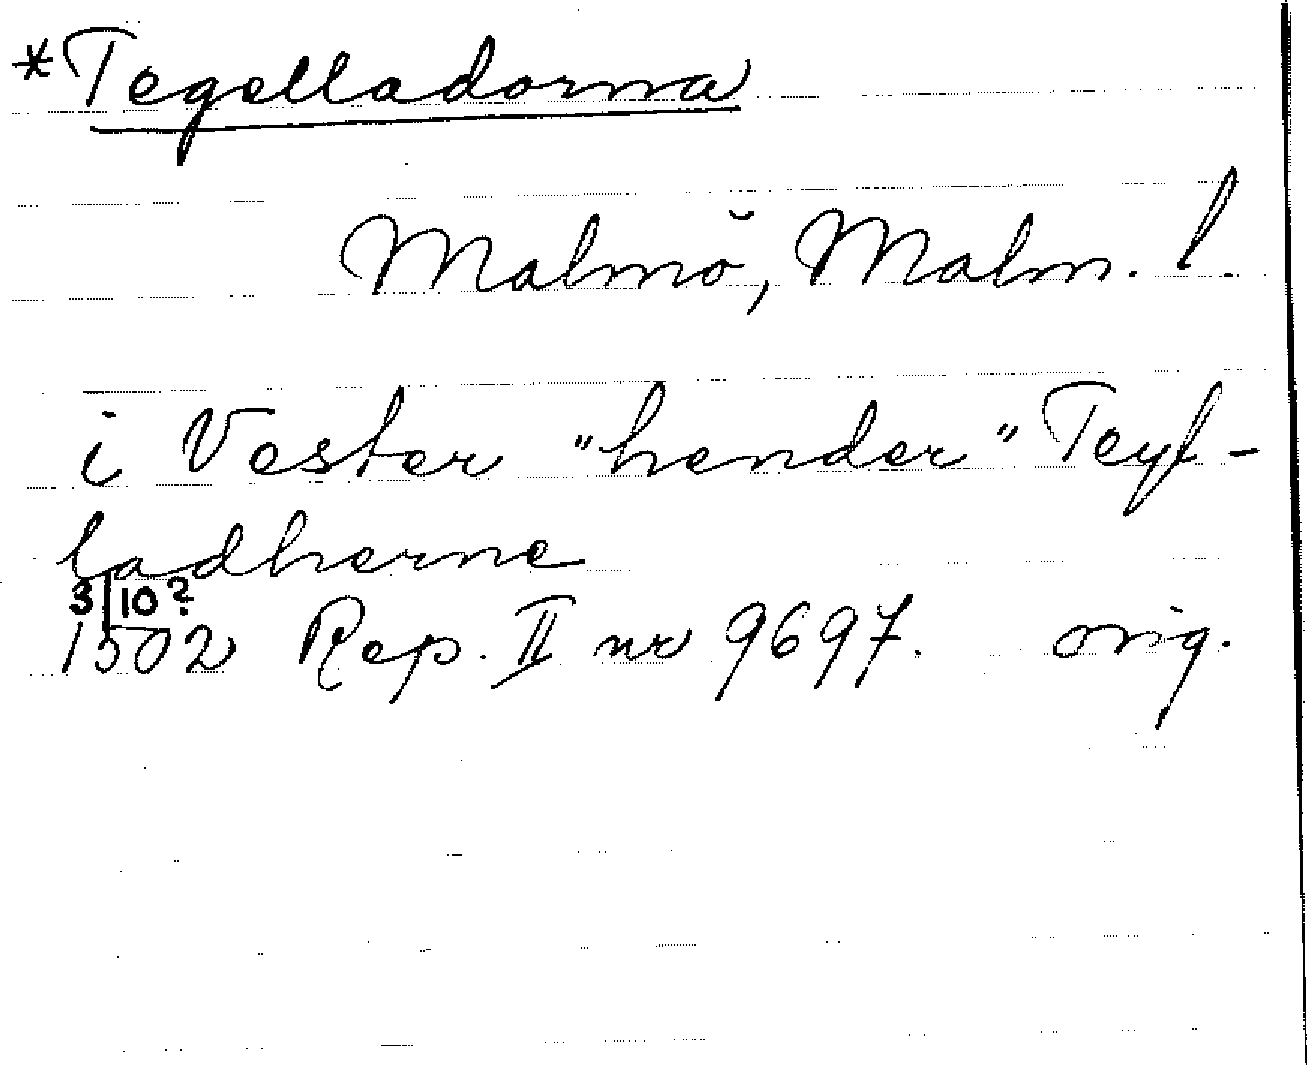 *Tegelladorna
Malmö, Malm. l.
i Vester "hender" Teyl-
ladherne
3/10?
1502 Rep. II nr 9697. orig.